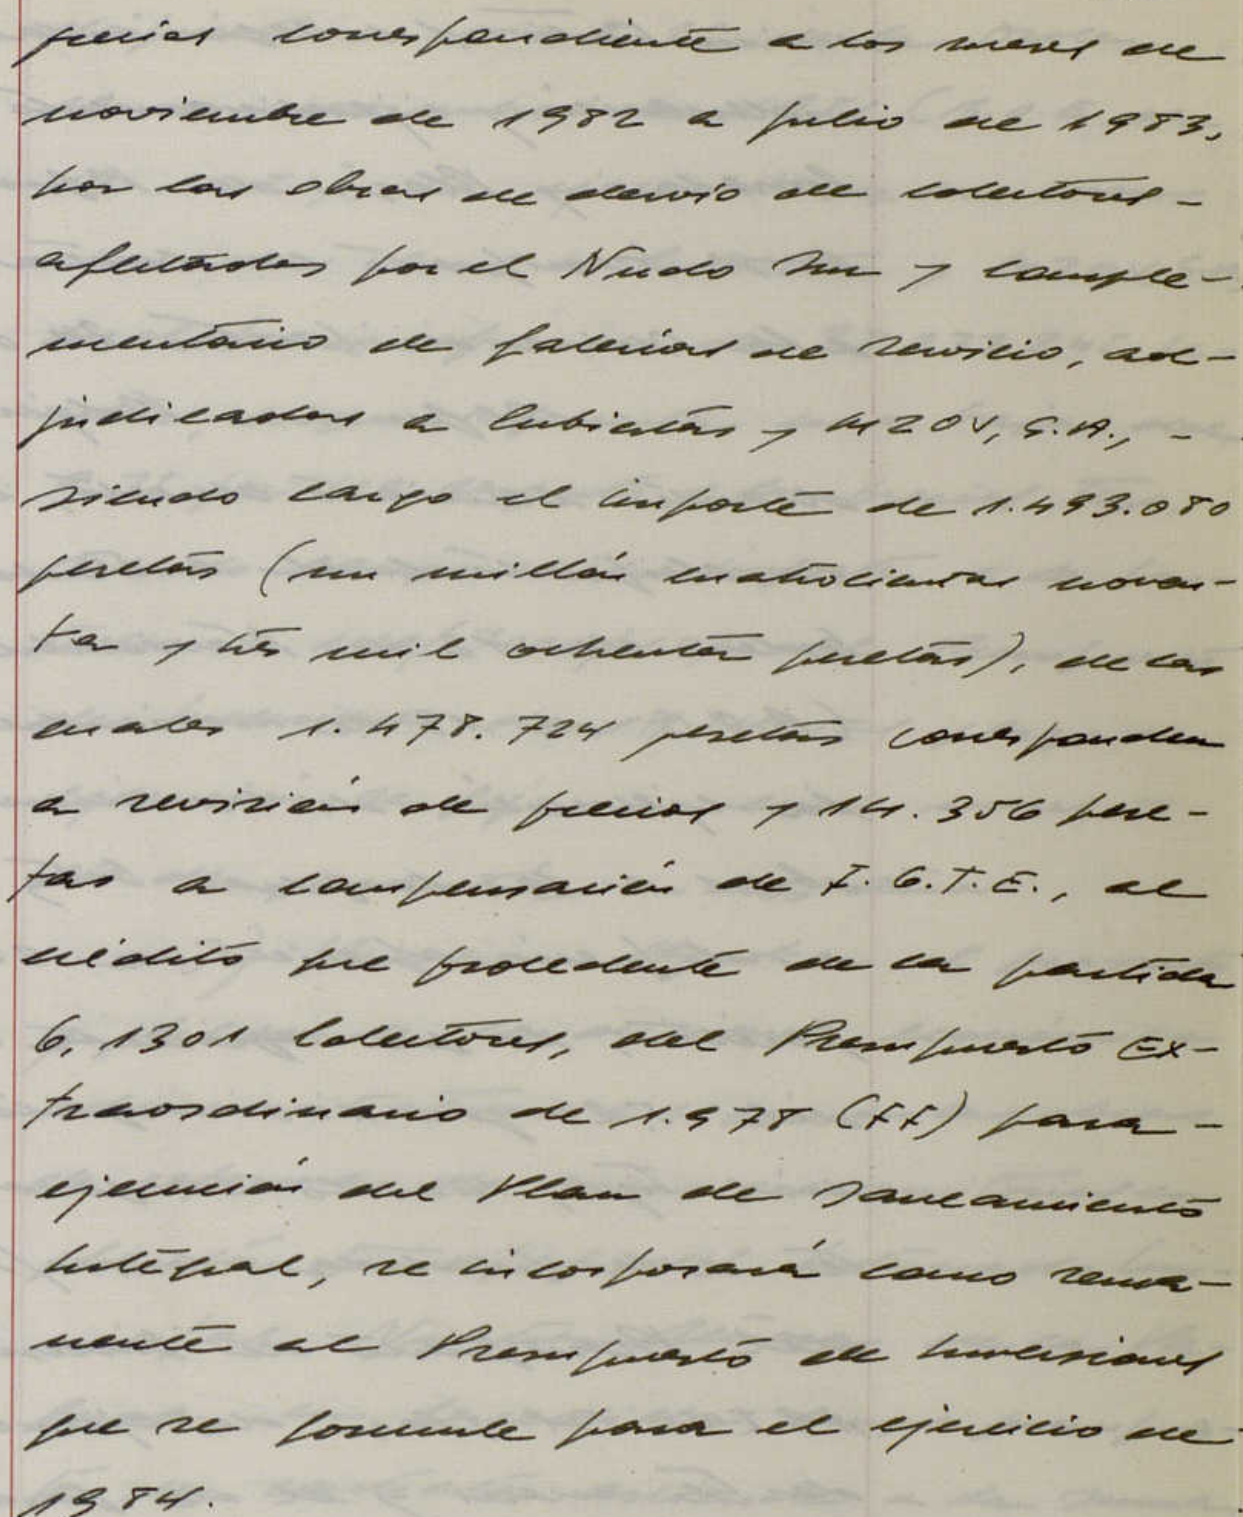 precios correspondiente a los meses de
noviembre de 1982 a julio de 1983,
por las obras de desvio de colectores -
afectados por el Nudo Sur y comple-
mentario de galerías de servicio, ad-
judicadas a Cubiertas y MZOV, S.A., -
siendo cargo el importe de 1.493.080
pesetas (un millón cuatrocientas noven-
ta y tres mil ochenta pesetas), de las
cuales 1.478.724 pesetas corresponden
a revisión de precios y 14.356 pese-
tas a compensación de I.G.T.E., al
crédito que procedente de la partida
6.1301 Colectores, del Presupuesto Ex-
traordinario de 1.978 (FF) para -
ejecución del Plan de Saneamiento
Integral, se incorporará como rema-
nente al Presupuesto de Inversiones
que se formule para el ejercicio de
1984.